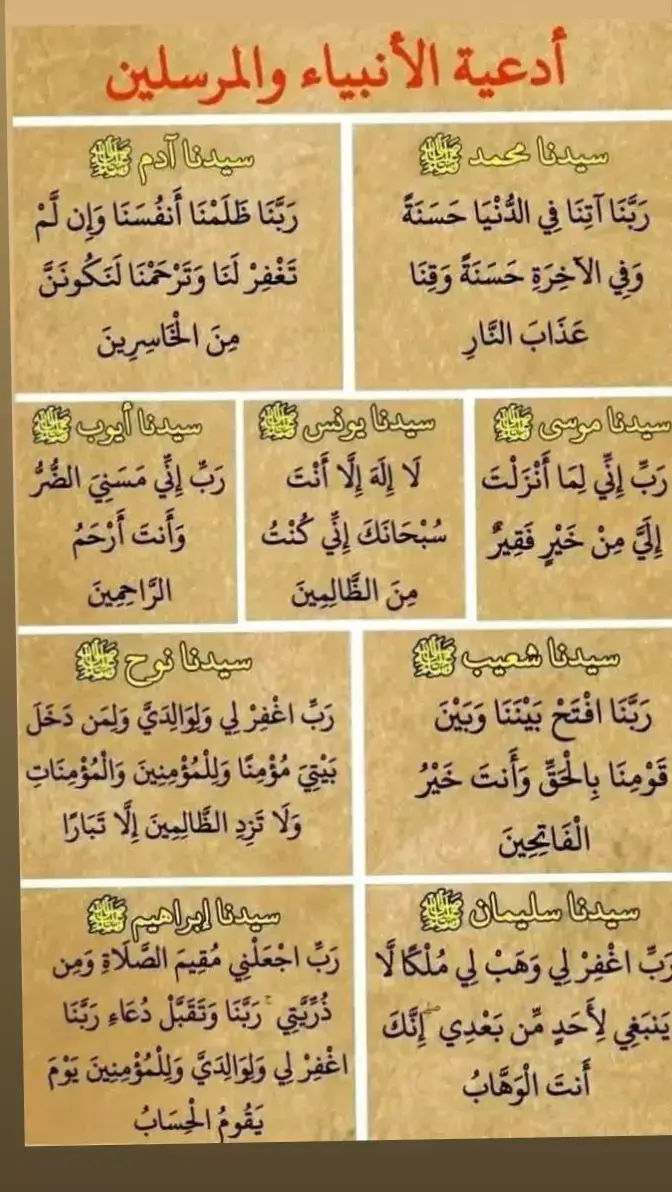 أدعية الأنبياء والمرسلين
سيدنا محمد ﷺ
رَبَّنَا آتِنَا فِي الدُّنْيَا حَسَنَةً
وَفِي الآخِرَةِ حَسَنَةً وَقِنَا
عَذَابَ النَّارِ
سيدنا آدم ﷺ
رَبَّنَا ظَلَمْنَا أَنفُسَنَا وَإِن لَّمْ
تَغْفِرْ لَنَا وَتَرْحَمْنَا لَنَكُونَنَّ
مِنَ الْخَاسِرِينَ
سيدنا موسى ﷺ
رَبِّ إِنِّي لِمَا أَنْزَلْتَ
إِلَيَّ مِنْ خَيْرٍ فَقِيرٌ
سيدنا يونس ﷺ
لَا إِلَهَ إِلَّا أَنْتَ
سُبْحَانَكَ إِنِّي كُنْتُ
مِنَ الظَّالِمِينَ
سيدنا أيوب ﷺ
رَبِّ إِنِّي مَسَنِيَ الضُّرُّ
وَأَنتَ أَرْحَمُ
الرَّاحِمِينَ
سيدنا شعيب ﷺ
رَبَّنَا افْتَحْ بَيْنَنَا وَبَيْنَ
قَوْمِنَا بِالْحَقِّ وَأَنتَ خَيْرُ
الْفَاتِحِينَ
سيدنا نوح ﷺ
رَبِّ اغْفِرْ لِي وَلِوَالِدَيَّ وَلِمَن دَخَلَ
بَيْتِيَ مُؤْمِنًا وَلِلْمُؤْمِنِينَ وَالْمُؤْمِنَاتِ
وَلَا تَزِدِ الظَّالِمِينَ إِلَّا تَبَارًا
سيدنا سليمان ﷺ
رَبِّ اغْفِرْ لِي وَهَبْ لِي مُلْكًا لَّا
يَنبَغِي لِأَحَدٍ مِّن بَعْدِي ۖ إِنَّكَ
أَنتَ الْوَهَّابُ
سيدنا إبراهيم ﷺ
رَبِّ اجْعَلْنِي مُقِيمَ الصَّلَاةِ وَمِن
ذُرِّيَّتِي ۚ رَبَّنَا وَتَقَبَّلْ دُعَاءِ رَبَّنَا
اغْفِرْ لِي وَلِوَالِدَيَّ وَلِلْمُؤْمِنِينَ يَوْمَ
يَقُومُ الْحِسَابُ